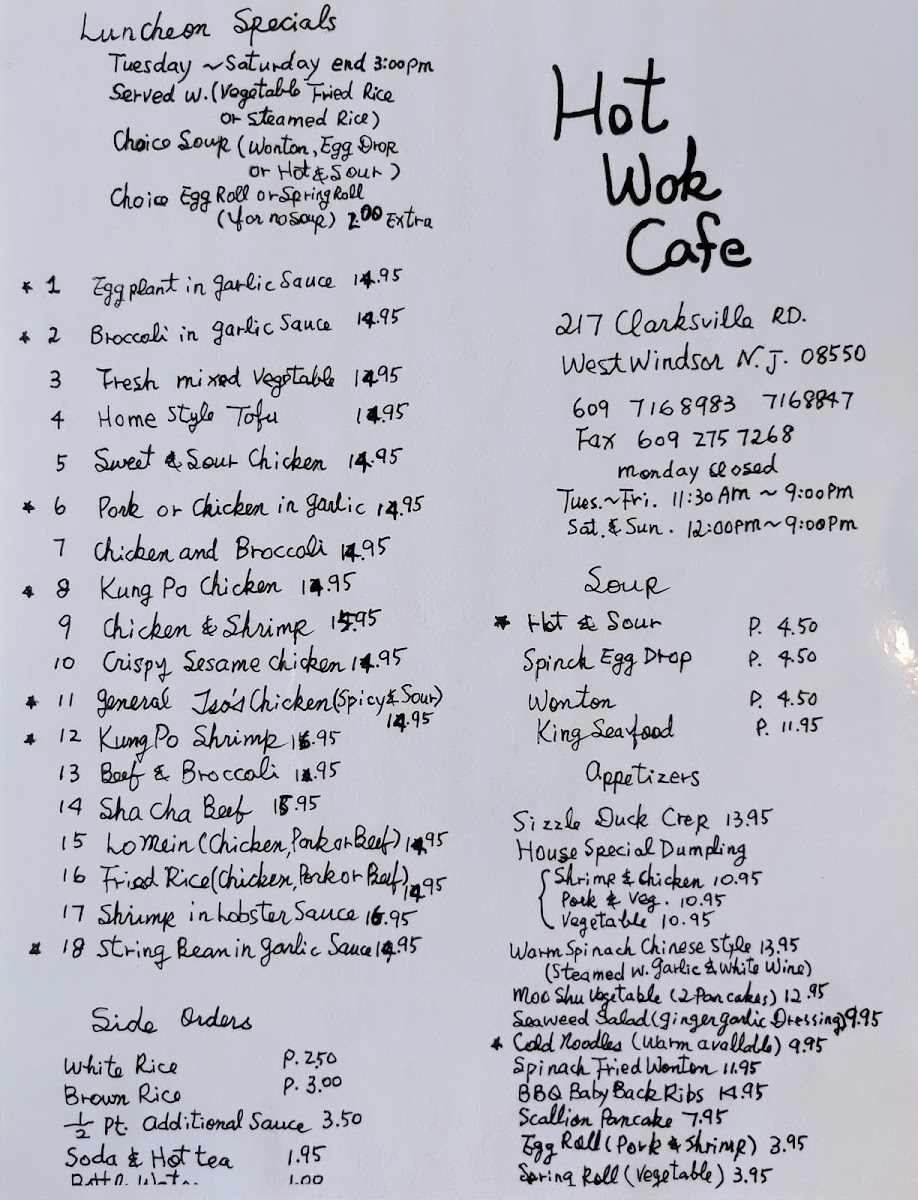 Luncheon Specials
Tuesday ~ Saturday end 3:00pm
Served w. (Vegetable Fried Rice
or Steamed Rice)
Choice Soup (Wonton, Egg Drop
or Hot & Sour)
Choice Egg Roll or Spring Roll
(for no soup) 2.00 Extra
* 1 Eggplant in garlic Sauce 14.95
* 2 Broccoli in garlic Sauce 14.95
3 Fresh mixed Vegetable 14.95
4 Home Style Tofu 14.95
5 Sweet & Sour Chicken 14.95
* 6 Pork or Chicken in garlic 14.95
7 Chicken and Broccoli 14.95
* 8 Kung Po Chicken 14.95
9 Chicken & Shrimp 15.95
10 Crispy Sesame chicken 14.95
* 11 general Tso's Chicken (Spicy & Sour)
14.95
* 12 Kung Po Shrimp 16.95
13 Beef & Broccoli 14.95
14 Sha Cha Beef 15.95
15 Lo Mein (Chicken, Pork or Beef) 14.95
16 Fried Rice (Chicken, Pork or Beef) 14.95
17 Shrimp in Lobster Sauce 16.95
* 18 String Bean in garlic Sauce 14.95
Side Orders
White Rice P. 2.50
Brown Rice P. 3.00
1/2 Pt. Additional Sauce 3.50
Soda & Hot tea 1.95
1.00
Hot
Wok
Cafe
217 Clarksville RD.
West Windsor N.J. 08550
609 7168983 7168847
Fax 609 275 7268
monday closed
Tues.~Fri. 11:30 Am ~ 9:00Pm
Sat. & Sun. 12:00pm~9:00Pm
Soup
* Hot & Sour P. 4.50
Spinch Egg Drop P. 4.50
Wonton P. 4.50
King Seafood P. 11.95
Appetizers
Sizzle Duck Crep 13.95
House Special Dumpling
Shrimp & Chicken 10.95
Pork & Veg. 10.95
Vegetable 10.95
Warm Spinach Chinese Style 13.95
(Steamed w. garlic & White Wine)
Moo Shu Vegetable (2 Pancakes) 12.95
Seaweed Salad (ginger garlic Dressing) 9.95
* Cold Noodles (Warm available) 9.95
Spinach Fried Wonton 11.95
BBQ Baby Back Ribs 14.95
Scallion Pancake 7.95
Egg Roll (Pork & Shrimp) 3.95
Spring Roll (Vegetable) 3.95